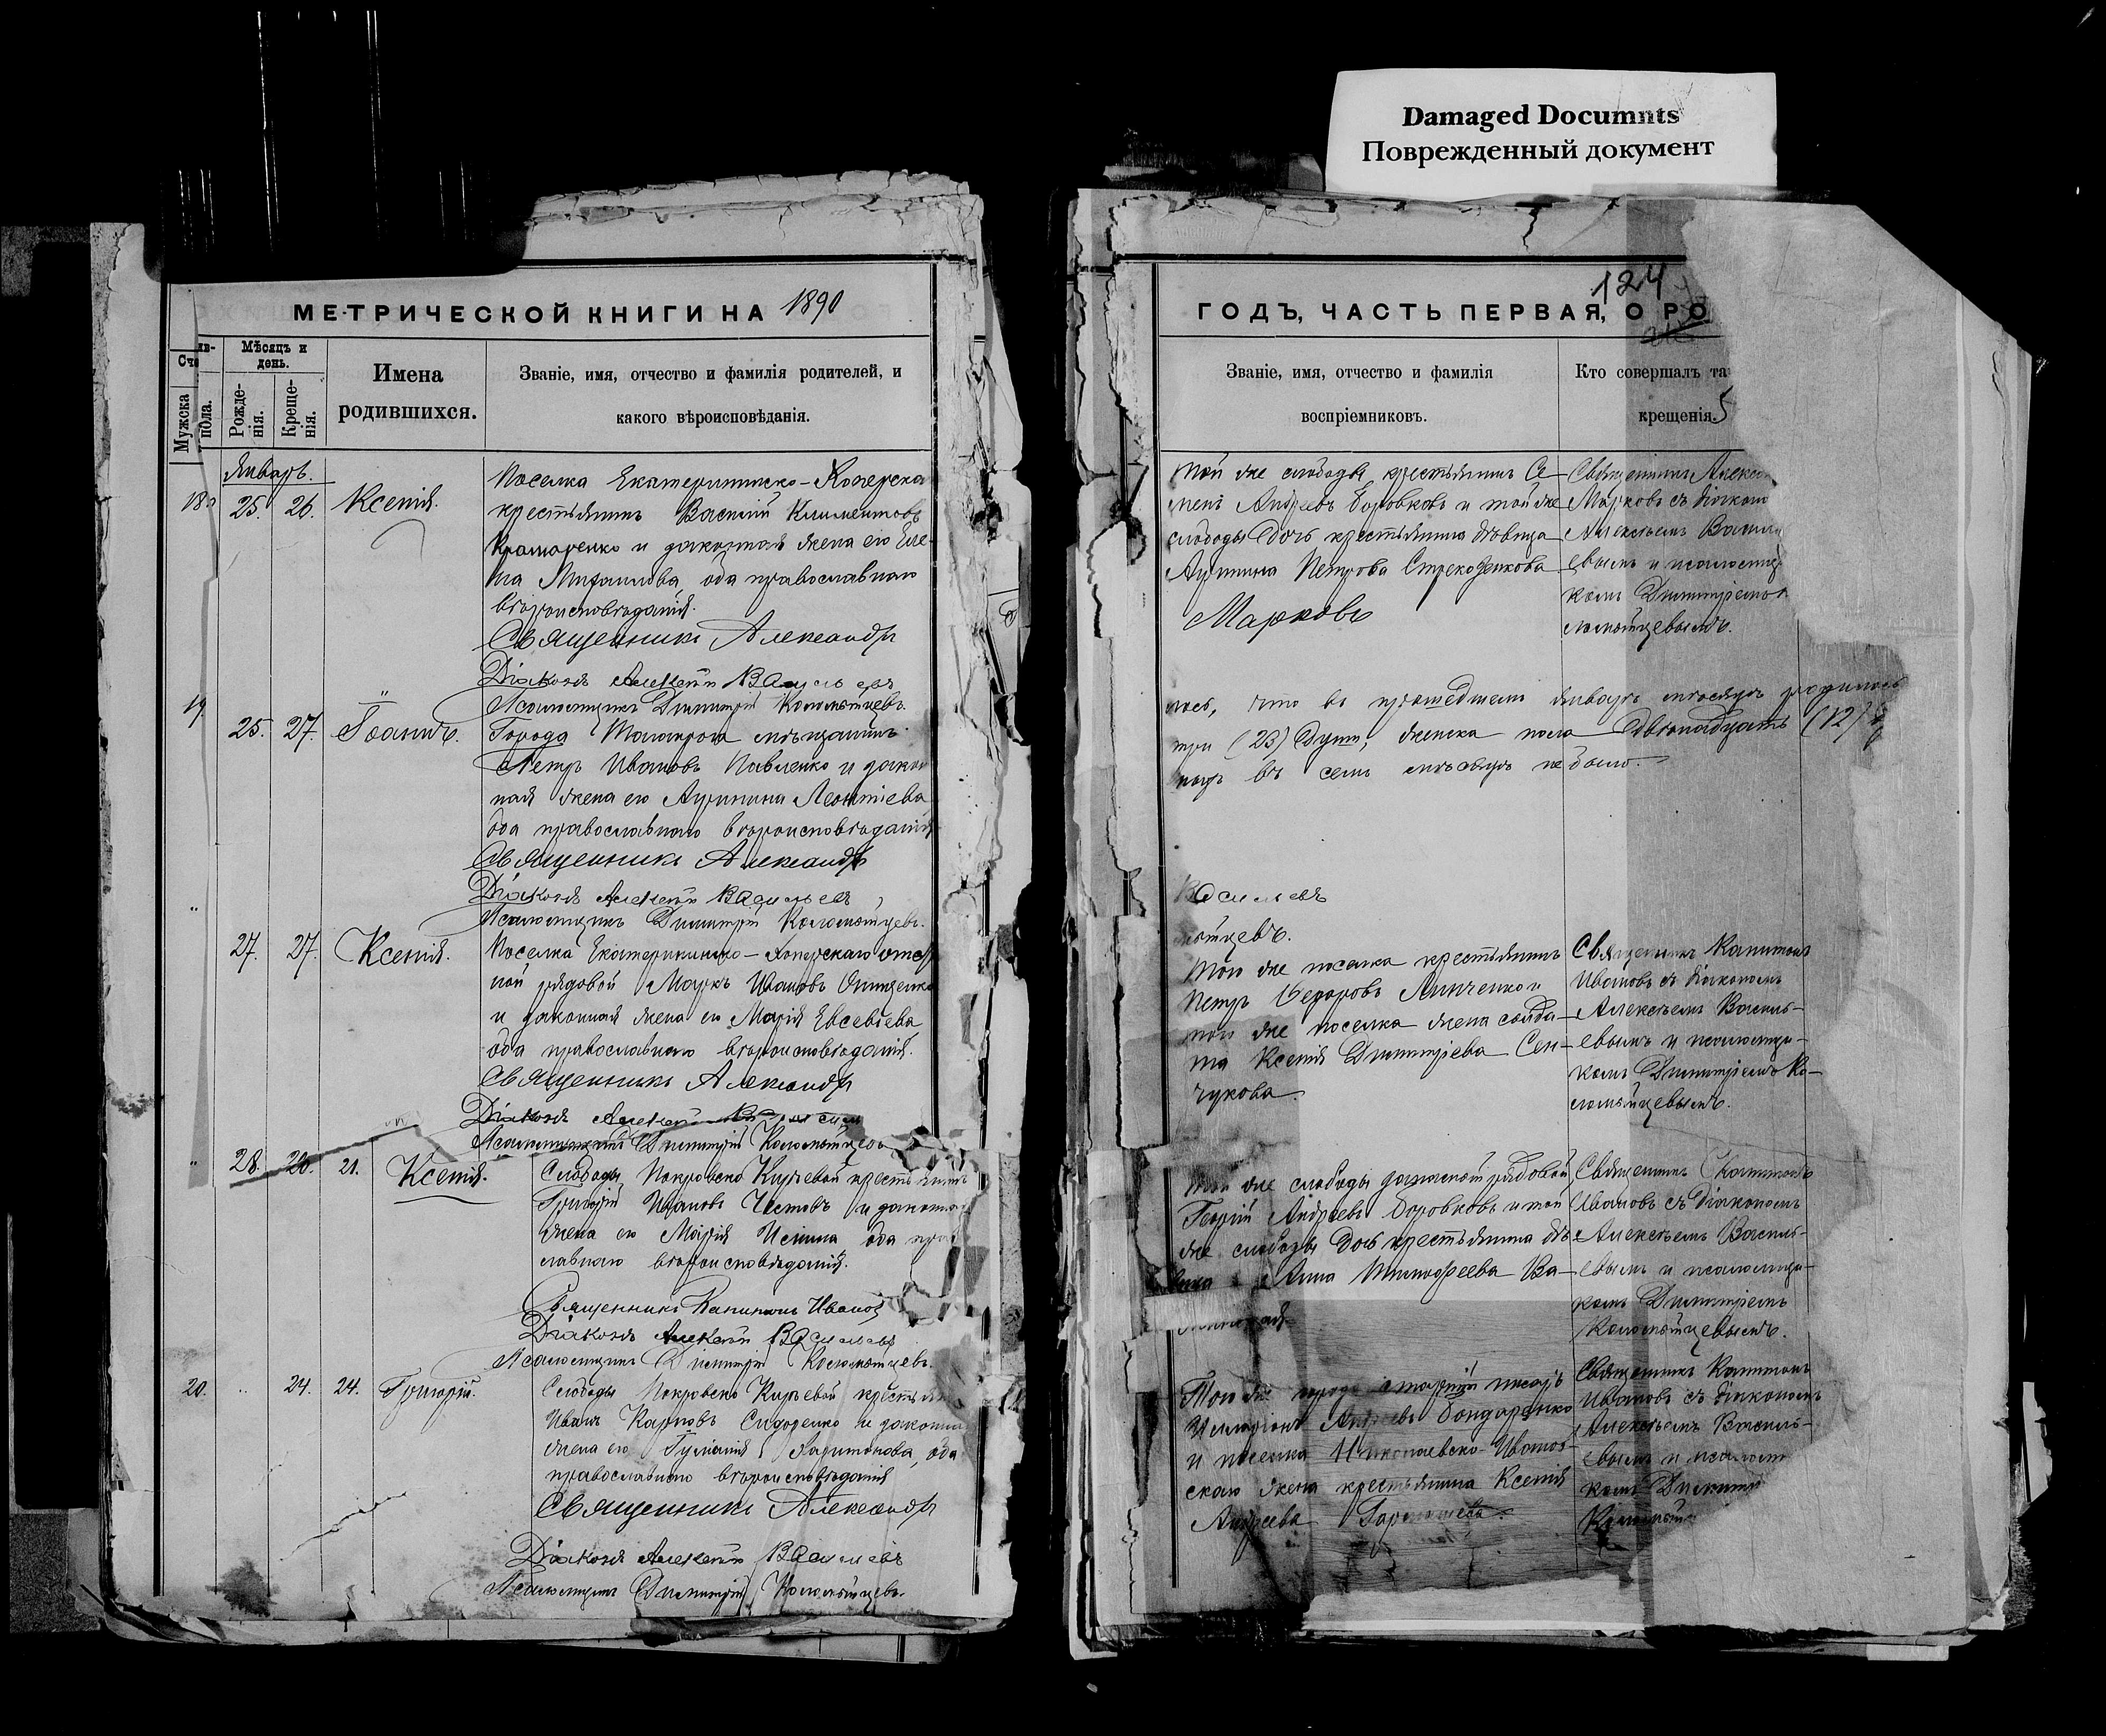 Damaged Documnts
Поврежденный документ
МЕТРИЧЕСКОЙ КНИГИ НА 1890
Мѣсяцъ и
день.
Мужска
пола.
Рожде-
нія.
Креще-
нія.
Имена
родившихся.
Званіе, имя, отчество и фамилія родителей, и
какого вѣроисповѣданія.
Январь.
25. 26. Ксенія.
Поселка Екатерининско-Хоперска
крестьянинъ Василій Климентовъ
Крамаренко и законная жена его Еле-
на Михаилова, оба православнаго
вѣроисповѣданія.
Священникъ Александръ
Діаконъ Алексѣй Васильевъ
Псаломщикъ Димитрій Коломѣйцевъ.
19
25. 27. Іоаннъ.
Города Таганрога мѣщанинъ
Петръ Ивановъ Павленко и закон
ная жена его Агрипина Леонтіева
оба православнаго вѣроисповѣданія
Священникъ Александръ
Діаконъ Алексѣй Васильевъ
Псаломщикъ Димитрій Коломѣйцевъ.
27. 27. Ксенія.
Поселка Екатерининско-Хоперскаго
рядовой Маркъ Ивановъ Онищенко
и законная жена его Марія Евсевіева
оба православнаго вѣроисповѣданія.
Священникъ Александръ
Діаконъ Алексѣй
Псаломщикъ Димитрій Коломѣйцевъ
28. 21. Ксенія.
Слободы Покровско Кирѣевой крестьянинъ
Григорій Ивановъ Чистовъ и законная
жена его Марія оба пра
славнаго вѣроисповѣданія.
Священникъ Капитонъ Ивановъ
Діаконъ Алексѣй Васильевъ
Псаломщикъ Димитрій Коломѣйцевъ.
20. 24. 24. Григорій.
Слободы Покровско Кирѣевой крестьян
Иванъ Карповъ Сидоренко и законна
жена его Іуліанія Харитонова, оба
православнаго вѣроисповѣданія
Священникъ Александръ
Діаконъ Алексѣй Васильевъ
Псаломщикъ Димитрій Коломѣйцевъ.
124
ГОДЪ, ЧАСТЬ ПЕРВАЯ, О РО
Званіе, имя, отчество и фамилія
воспріемниковъ.
Кто совершалъ та
крещенія.
5
Той же слободы крестьянинъ Се-
менъ Андреевъ Боровковъ и той же
слободы дочь крестьянина дѣвица
Агрипина Петрова Стрекозенкова
Марковъ
Священникъ Алекса
Марковъ съ діакономъ
Алексѣемъ Василь
евымъ и псаломщи
комъ Димитріемъ
ломѣйцевымъ.
что въ прошедшемъ январѣ мѣсяцѣ родилось
три (23) душъ, женска пола двѣнадцать (12)
въ семъ мѣсяцѣ не было.
Васильевъ
мѣйцевъ.
Того же поселка крестьянинъ
Петръ Федоровъ Линченко и
того же поселка жена солда-
та Ксенія Димитріева Сен-
чукова.
Священникъ Капитонъ
Ивановъ съ діакономъ
Алексѣемъ Василь-
евымъ и псаломщи-
комъ Димитріемъ Ко-
ломѣйцевымъ.
Той же слободы запасной рядовой
Георгій Андреевъ Боровковъ и той
же слободы дочь крестьянина дѣ-
вица Анна Тимофеева Ва-
Священникъ Капитонъ
Ивановъ съ діакономъ
Алексѣемъ Василь-
евымъ и псаломщи-
комъ Димитріемъ
Коломѣйцевымъ.
Того же города старшій писарь
Илларіонъ Андреевъ Бондаренко
и поселка Николаевско-Иванов-
скаго жена крестьянина Ксенія
Андреева
Священникъ Капитонъ
Ивановъ съ діакономъ
Алексѣемъ Василь-
евымъ и псаломщ
комъ Димитрі
Коломѣй